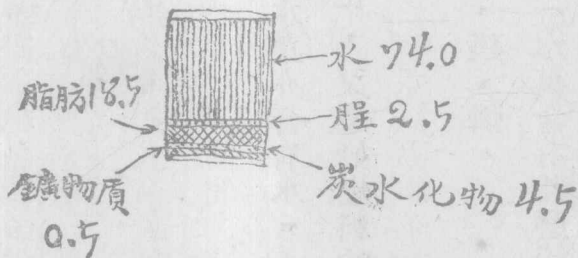 水 74.0
脂肪 18.5
脭 2.5
鑛物质
0.5
炭水化物 4.5